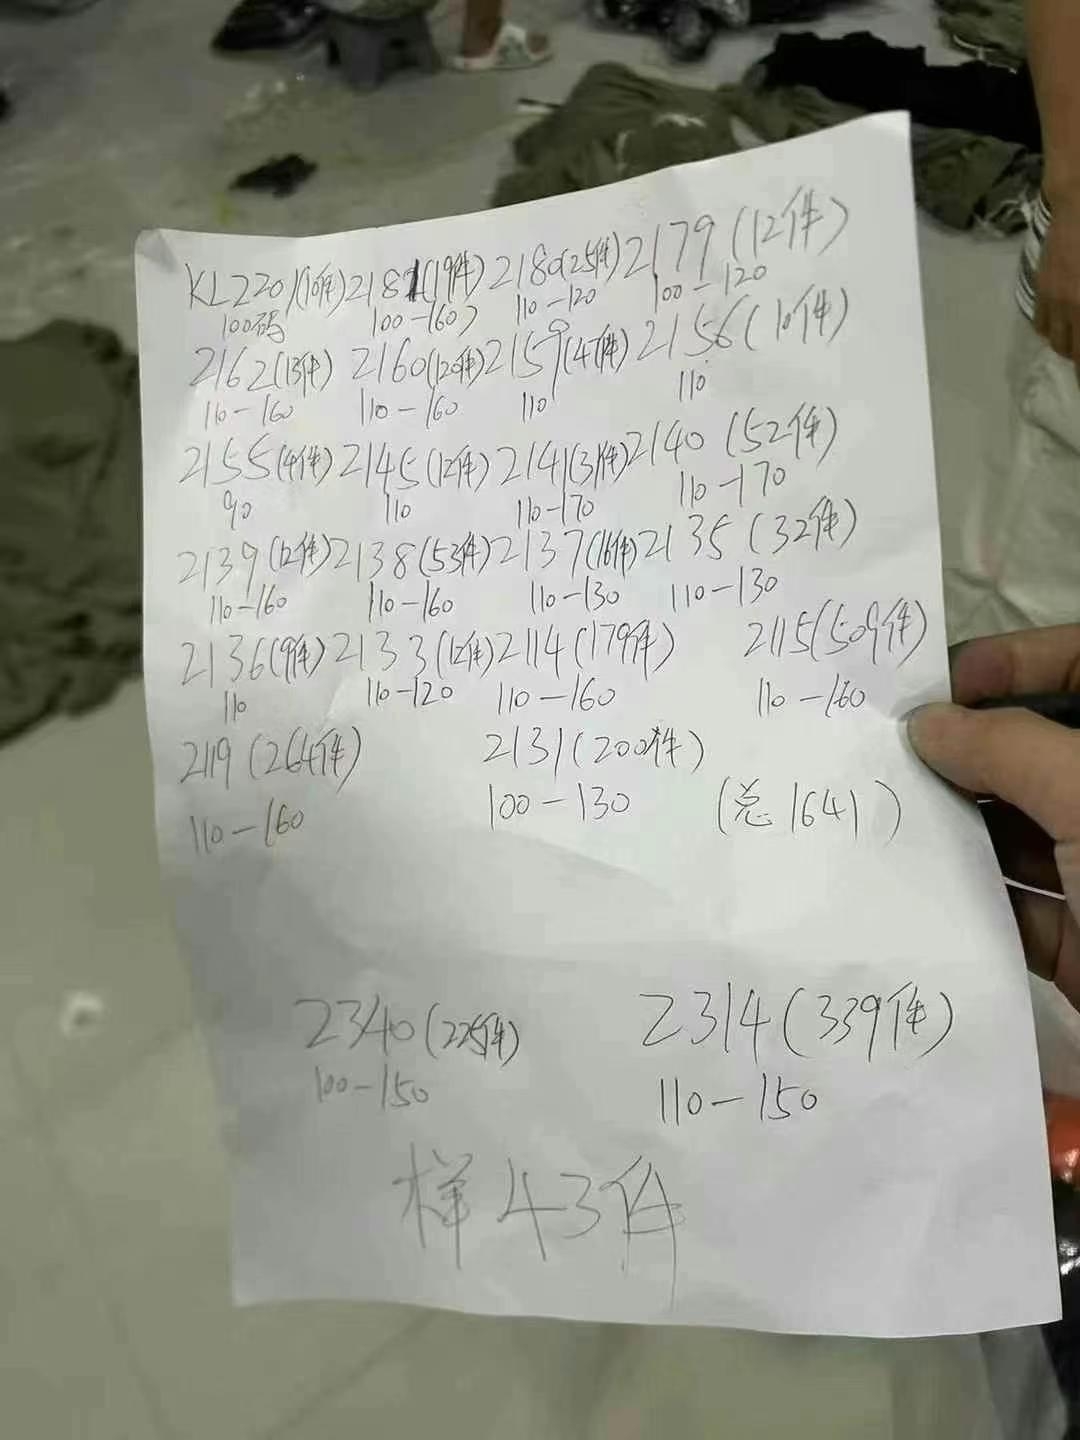 KL2201(10件) 2181(19件) 2180(25件) 2179(12件)
100码 100-160) 110-120 100-120
2162(13件) 2160(120件) 2159(47件) 2156(10件)
110-160 110-160 110 110
2155(4件) 2145(12件) 2141(31件) 2140(52件)
90 110 110-170 110-170
2139(12件) 2138(53件) 2137(16件) 2135(32件)
110-160 110-160 110-130 110-130
2136(9件) 2133(12件) 2114(179件) 2115(509件)
110 110-120 110-160 110-160
2119(264件) 2131(200件)
110-160 100-130 (总1641)
2340(225件) 2314(339件)
100-150 110-150
样43件